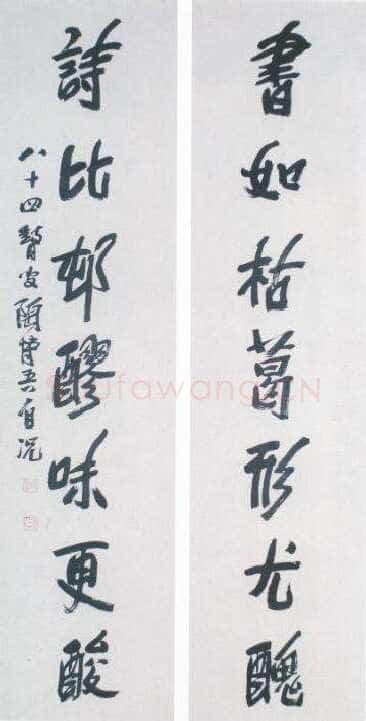 書如枯葛形尤醜
詩比邨醪味更酸
八十四瞽叟陶博吾自况
Shufawang.CN